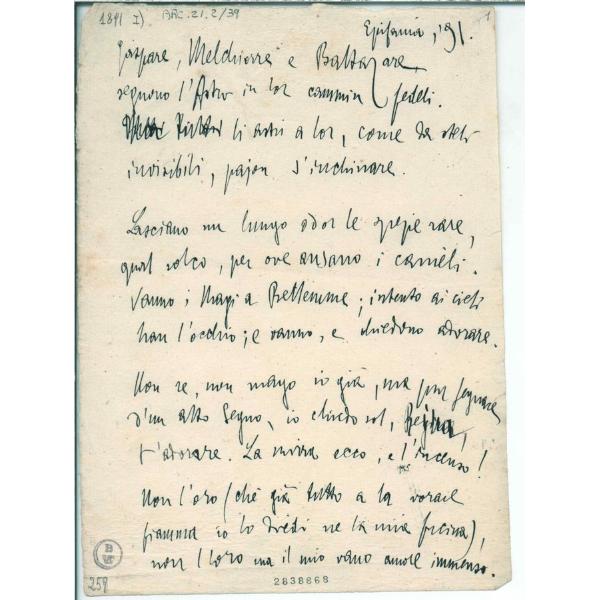 1891 I) BRC.21.2/39 1
Epifania, '91.
Gaspare, Melchiorre e Baltazare,
seguono l'Astro in lor cammin fedeli.
Tutti li astri a lor, come da steli
invisibili, pajon s'inchinare.
Lasciano un lungo odor le spezie rare,
qual solco, per ove ansano i camèli.
Vanno i Magi a Betlemme; intento ai cieli
han l'occhio; e vanno, e chiedono adorare.
Non re, non mago io già, ma pur segnace
d'un alto Segno, io chiedo sol,
t'adorare. La mirra ecco, e l'incenso!
Non l'oro (ché già tutto a la vorace
fiamma io lo diedi ne la mia fucina),
non l'oro ma il mio vano amore immenso.
259
2838868